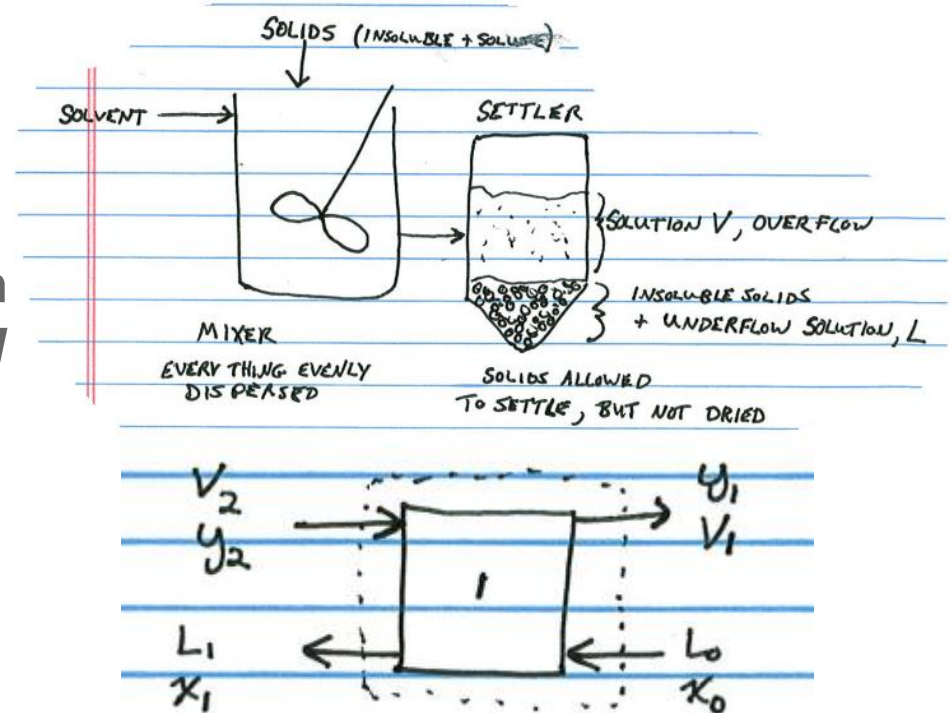 SOLIDS (INSOLUBLE + SOLUTE)
SOLVENT
SETTLER
SOLUTION V, OVERFLOW
INSOLUBLE SOLIDS
+ UNDERFLOW SOLUTION, L
MIXER
EVERYTHING EVENLY
DISPERSED
SOLIDS ALLOWED
TO SETTLE, BUT NOT DRIED
V₂
y₂
y₁
V₁
1
L₁
x₁
L₀
x₀